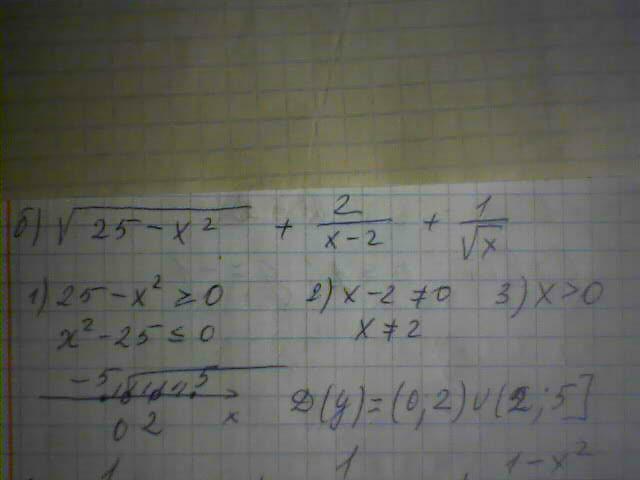 б) √25 - x² + 2/(x-2) + 1/√x
1) 25 - x² ≥ 0 2) x - 2 ≠ 0 3) x > 0
x² - 25 ≤ 0 x ≠ 2
-5 5
0 2 x D(y) = (0; 2) ∪ (2; 5]
1 1 1 - x²